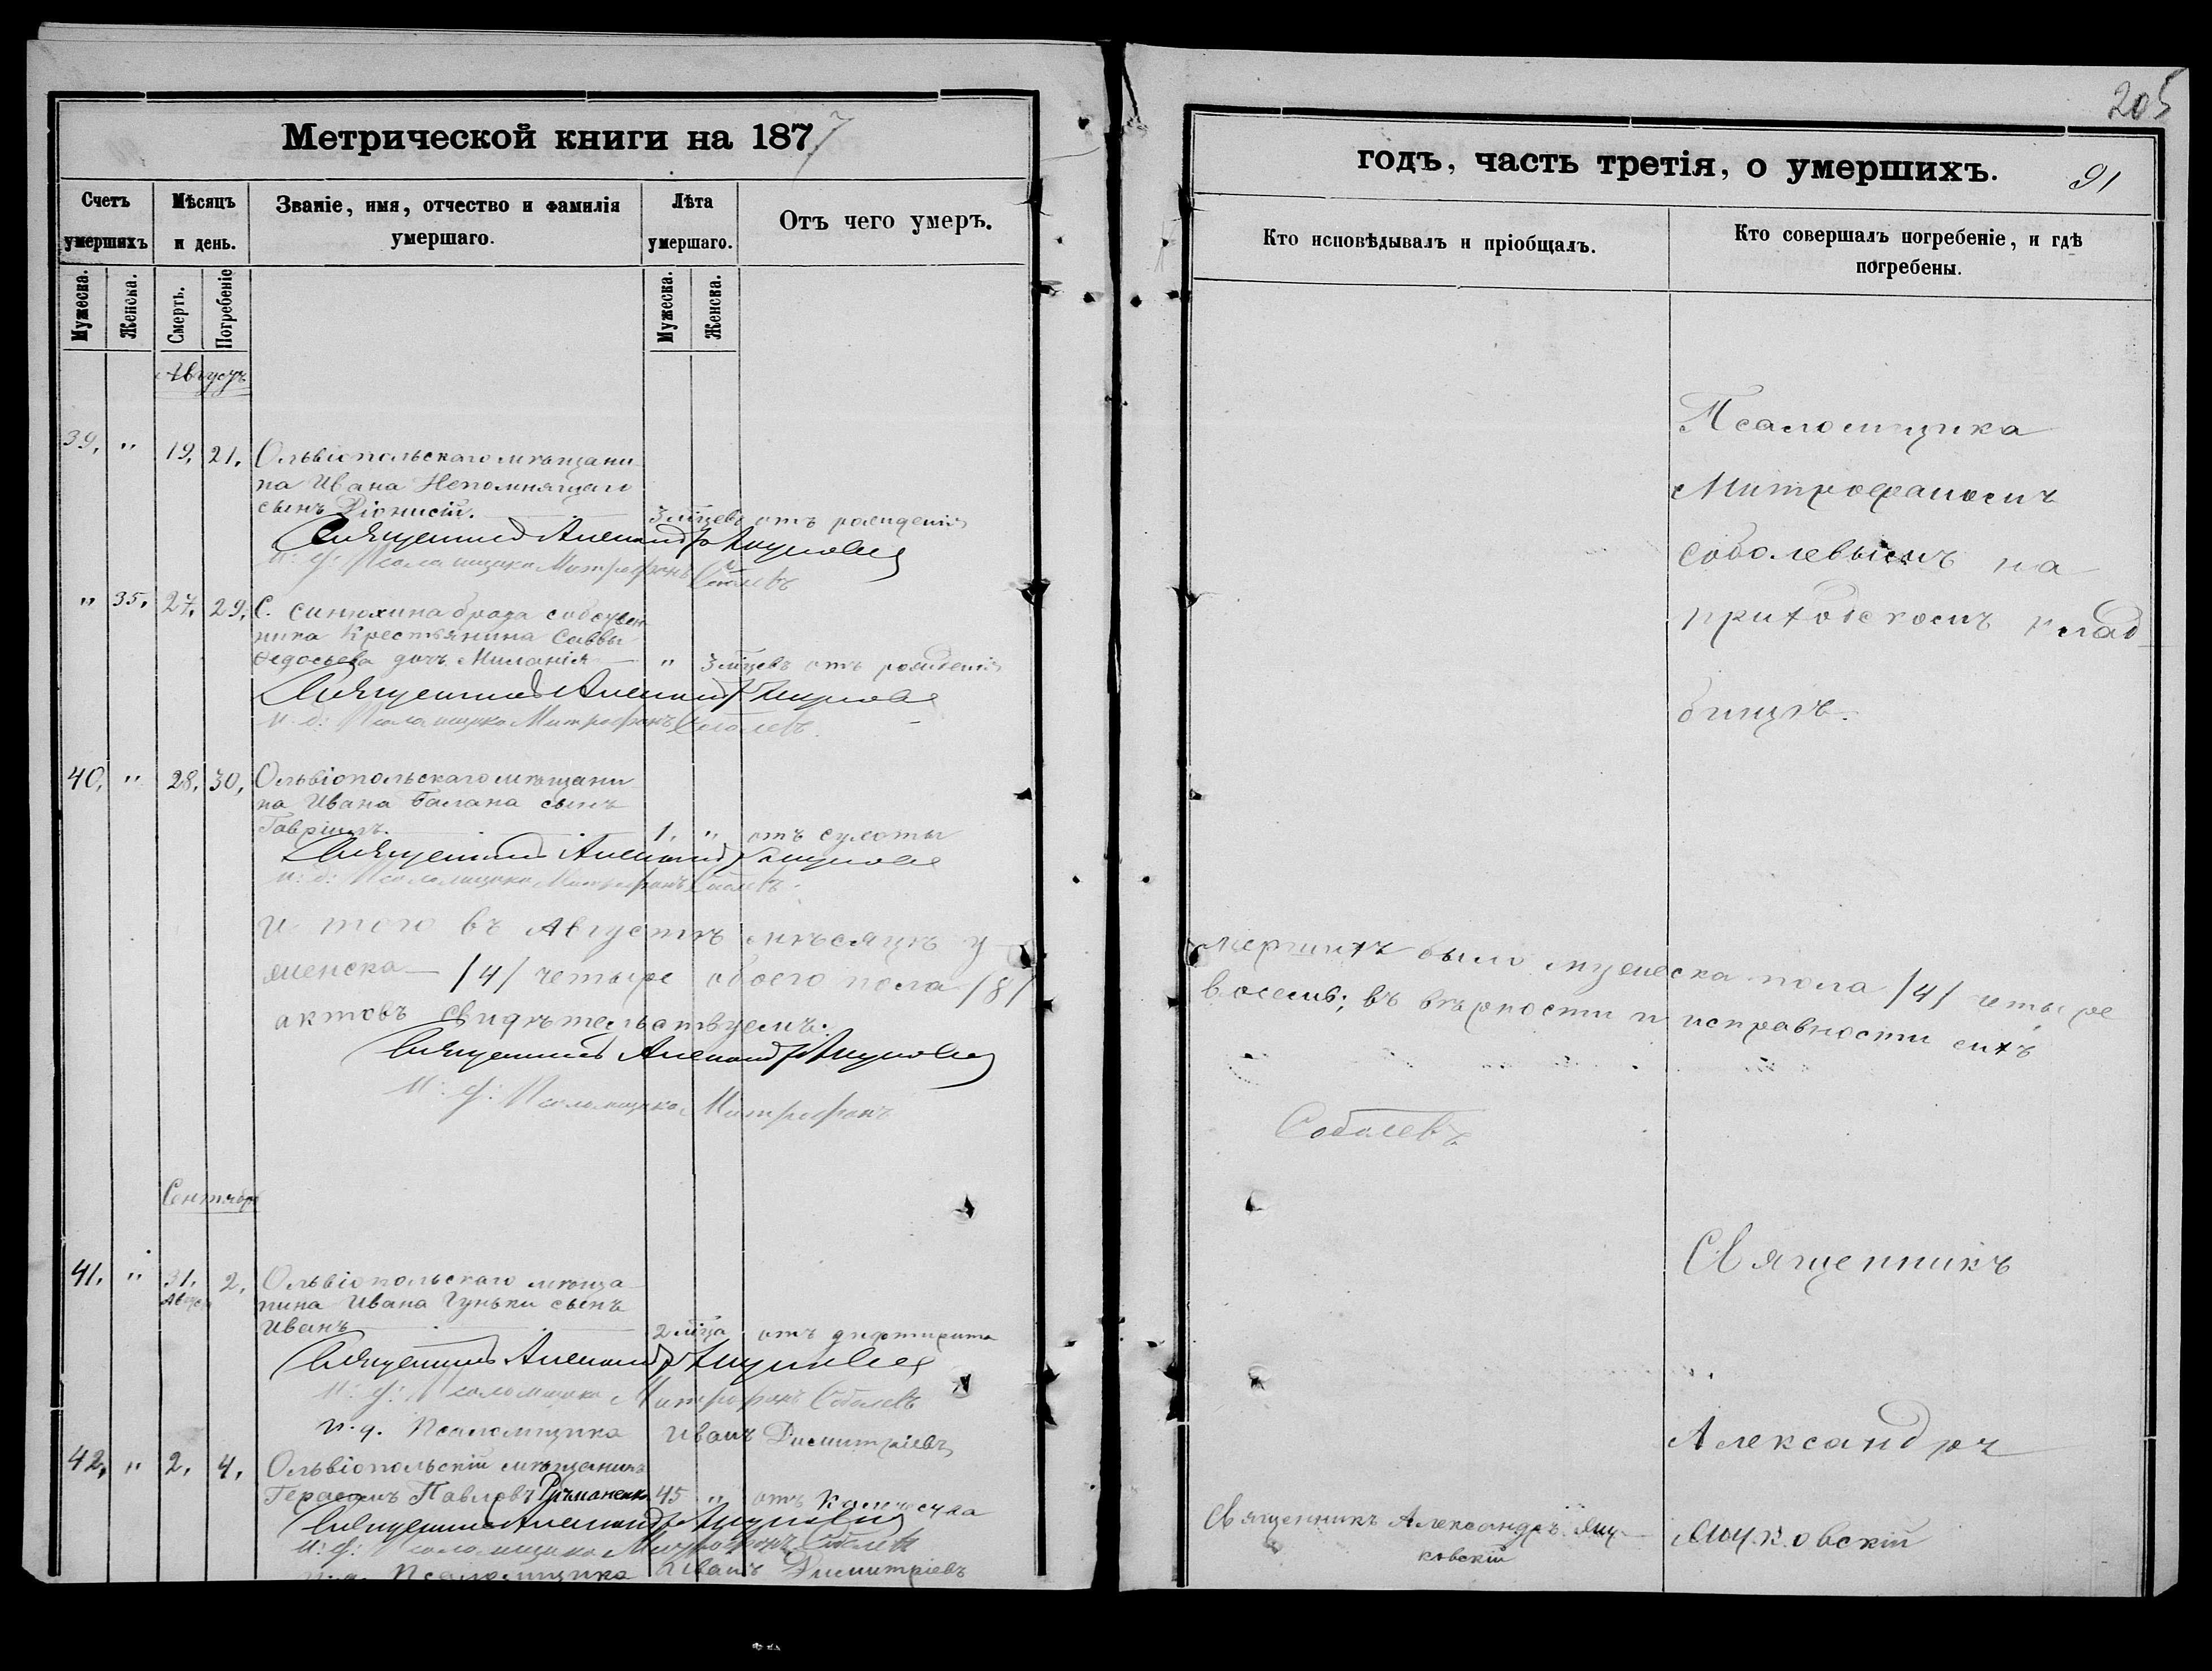 205
Метрической книги на 1877
годъ, часть третія, о умершихъ.
91
Счетъ умершихъ
Мѣсяцъ и день.
Званіе, имя, отчество и фамилія умершаго.
Лѣта умершаго.
Отъ чего умеръ.
Кто исповѣдывалъ и пріобщалъ.
Кто совершалъ погребеніе, и гдѣ погребены.
Мужеска.
Женска.
Смерть.
Погребеніе
Мужеска.
Женска.
Августъ
39. " 19. 21. Ольвіопольскаго мѣщани
на Ивана Непомнящаго
сынъ Діонисій. 3 мѣцевъ отъ рожденія
Священникъ Александръ
и: д: Псаломщика Митрофанъ Соболевъ
" 35. 27. 29. С. Синюхина брода собствен
ника Крестьянина Саввы
Федосьева дочь Миланія " 3 мѣцевъ отъ рожденія
Священникъ Александръ
и: д: Псаломщика Митрофанъ Соболевъ.
40. " 28. 30. Ольвіопольскаго мѣщани
на Ивана Балана сынъ
Гавріилъ. 1. " отъ сухоты
Священникъ Александръ
и: д: Псаломщика Митрофанъ Соболевъ.
Псаломщика
Митрофаномъ
Соболевымъ на
приходскомъ клад
бищѣ.
И того въ Августѣ мѣсяцѣ у
мершихъ было мужеска пола /4/ четыре
женска /4/ четыре обоего пола /8/
восемь; въ вѣрности и исправности сихъ
актовъ свидѣтельствуемъ:
Священникъ Александръ
и: д: Псаломщика Митрофанъ
Соболевъ
Сентябрь
41. " 31. Август 2. Ольвіопольскаго мѣща
нина Ивана Гуньки сынъ
Иванъ 2 мѣца отъ дифтирита
Священникъ Александръ
и: д: Псаломщика Митрофанъ Соболевъ
и. д. Псаломщика Иванъ Димитріевъ
42. " 2. 4. Ольвіопольскій мѣщанинъ
Герасимъ Павловъ 45 " отъ
Священникъ Александръ
и: д: Псаломщика Митрофанъ Соболевъ
и. д. Псаломщика Иванъ Димитріевъ
Священникъ Александръ Яцковскій
Священникъ
Александръ
Яцковскій